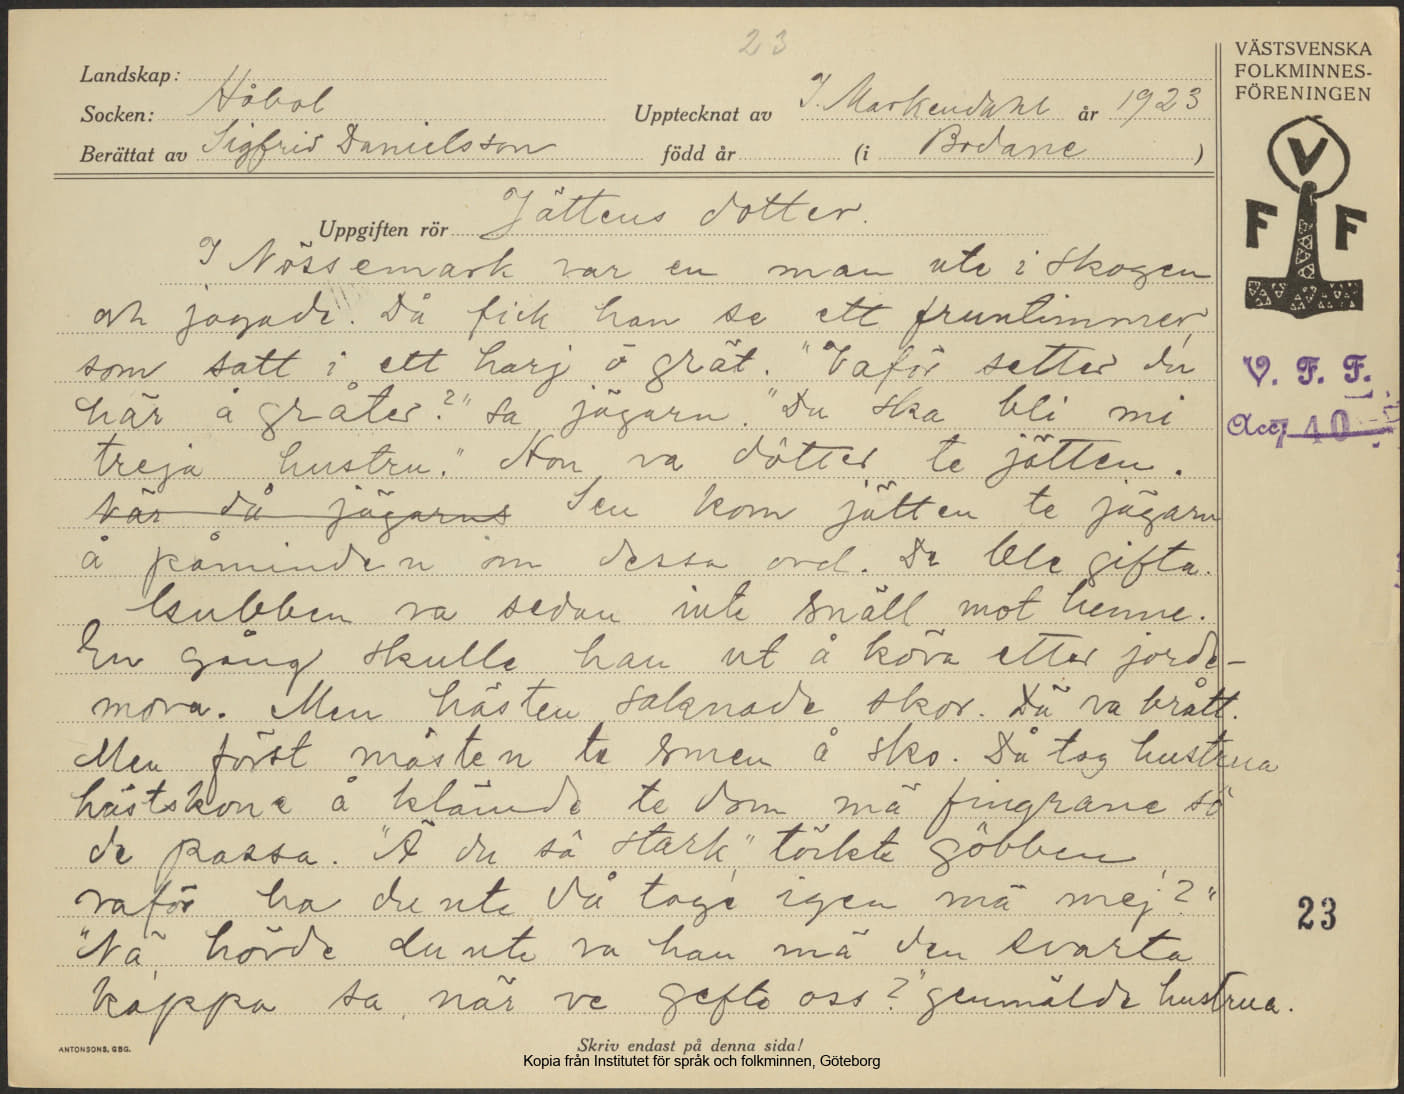 23
Landskap:
Socken: Håbol
Upptecknat av J. Markendahl år 1923
Berättat av Sigfrid Danielsson född år (i Bodane)
VÄSTSVENSKA
FOLKMINNES-
FÖRENINGEN
V
F F
V. F. F.
Acc. 740
Uppgiften rör Jättens dotter.
I Nössemark var en man ute i skogen
och jagade. Då fick han se ett fruntimmer,
som satt i ett harj ö grät. "Vaför setter du
här å gråter?" sa jägarn. "Du ska bli mi
treja hustru." Hon va dötter te jätten.
När då jägarns Sen kom jätten te jägarn
å påminden om dessa ord. De ble gifta.
Gubben va sedan inte snäll mot henne.
En gång skulle han ut å köra etter jorde-
mora. Men hästen saknade skor. Dä va brått.
Men först måsten te smen å sko. Då tog hustrua
hästskone å klämde te dom mä fingrane så
de passa. "Ä du så stark," törkte göbben
vaför ha du nte då tage igen mä mej?"
"Nä, hörde du nte va han mä den svarta
kappa sa, när ve gefte oss?" genmälde hustrua.
23
ANTONSONS, GBG.
Skriv endast på denna sida!
Kopia från Institutet för språk och folkminnen, Göteborg